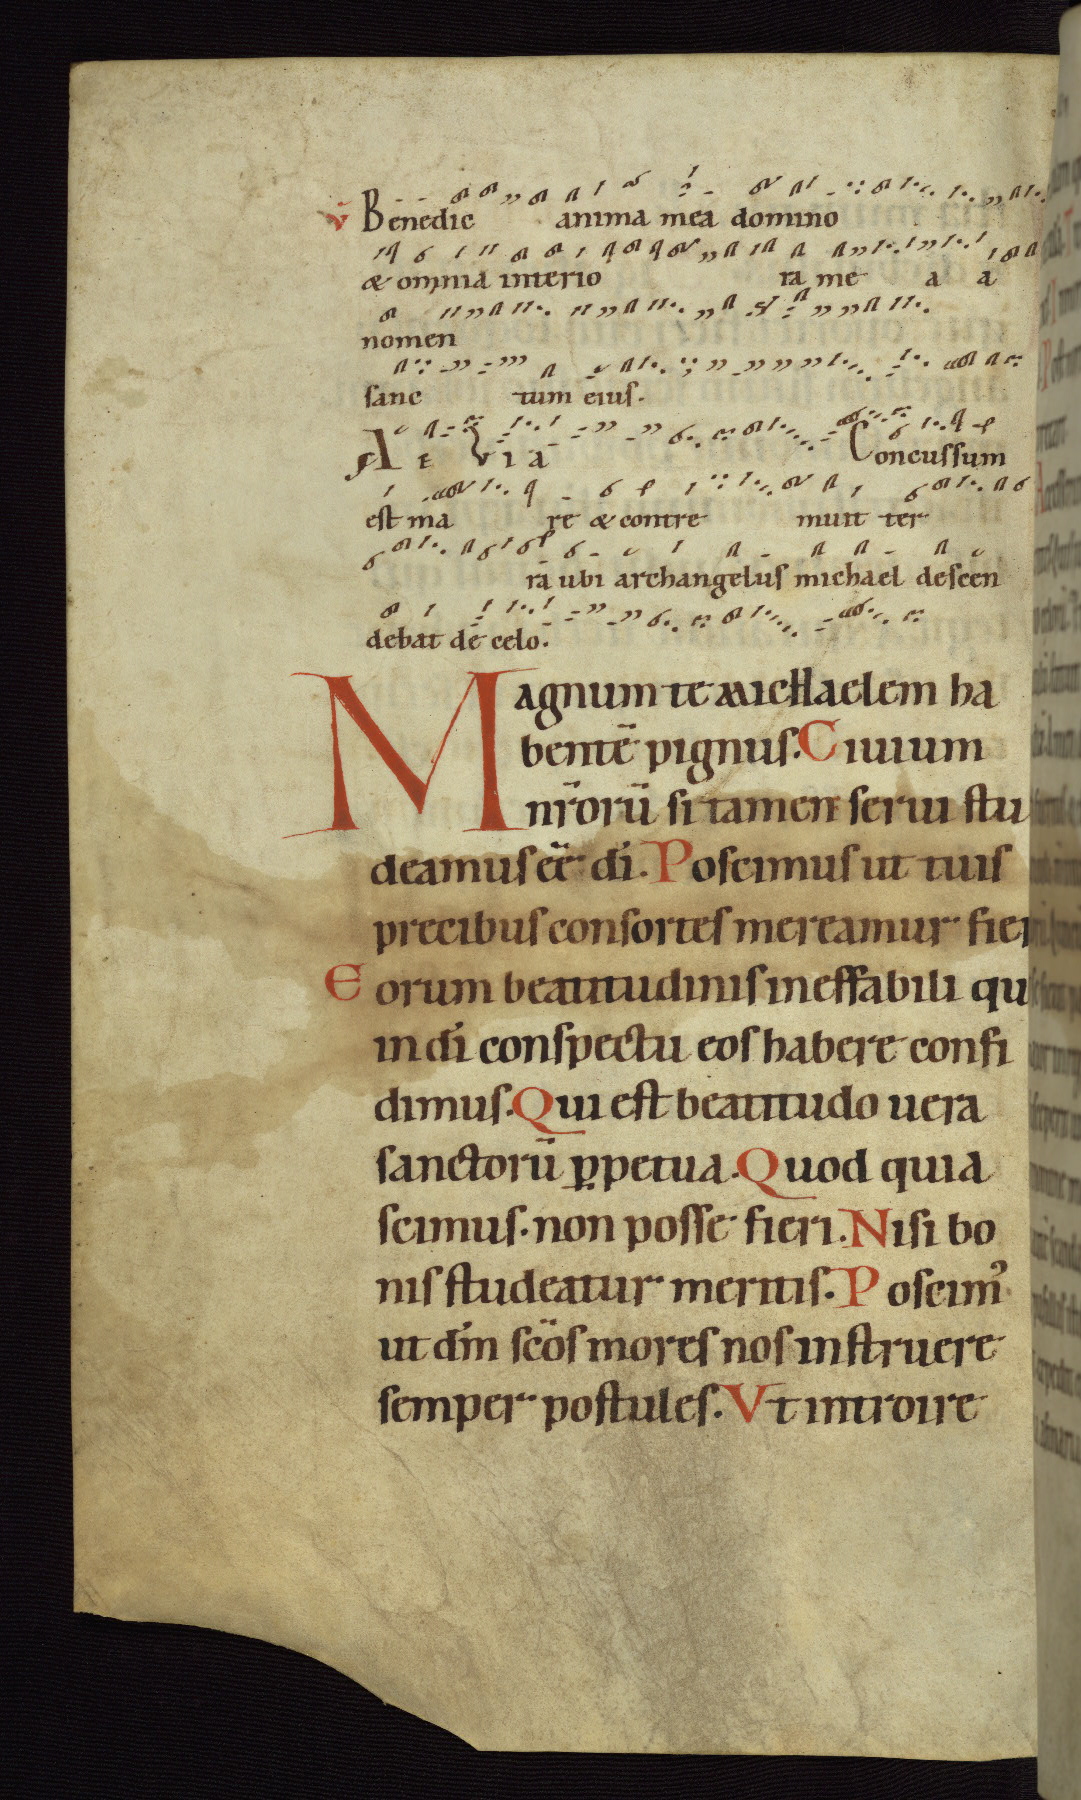 v̄ Benedic anima mea domino
& omnia interio ra me a a
nomen
sanc tum eius.
A E V I A Concussum
est ma re & contre muit ter
ra ubi archangelus michael descen
debat de celo.
Magnum te michaelem ha
bentē pignus. Ciuium
nr̄orū si tamen serui stu
deamus eē di. Poscimus ut tuis
precibus consortes mereamur fieri
Eorum beatitudinis ineffabili qu
in di conspectu eos habere confi
dimus. Qui est beatitudo uera
sanctorū ꝑpetua. Quod quia
scimus. non posse fieri. Nisi bo
nis studeatur meritis. Poscimꝰ
ut dm̄ scōs mores nos instruere
semper postules. Vt introire